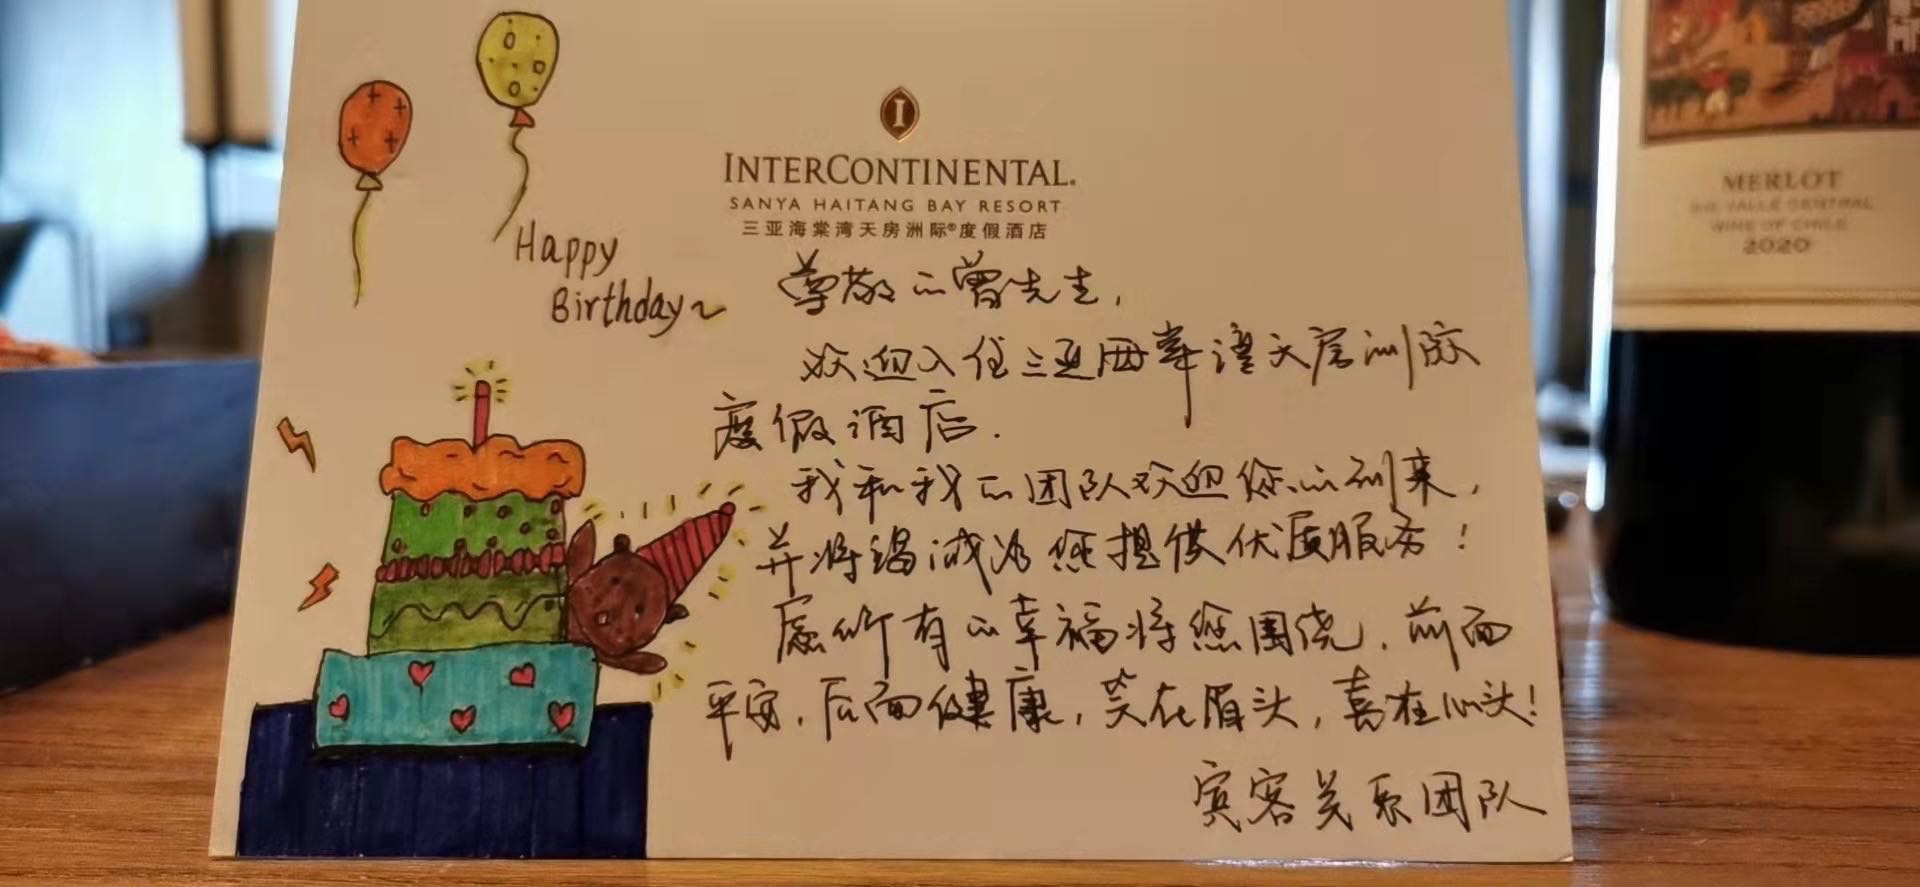 INTERCONTINENTAL.
SANYA HAITANG BAY RESORT
三亚海棠湾天房洲际®度假酒店
Happy
Birthday~
尊敬的曾先生,
欢迎入住三亚海棠湾天房洲际
度假酒店.
我和我的团队欢迎您的到来,
并将竭诚为您提供优质服务!
愿所有的幸福将您围绕,前面
平安,后面健康,笑在眉头,喜在心头!
宾客关系团队
MERLOT
VALLE CENTRAL
WINE OF CHILE
2020